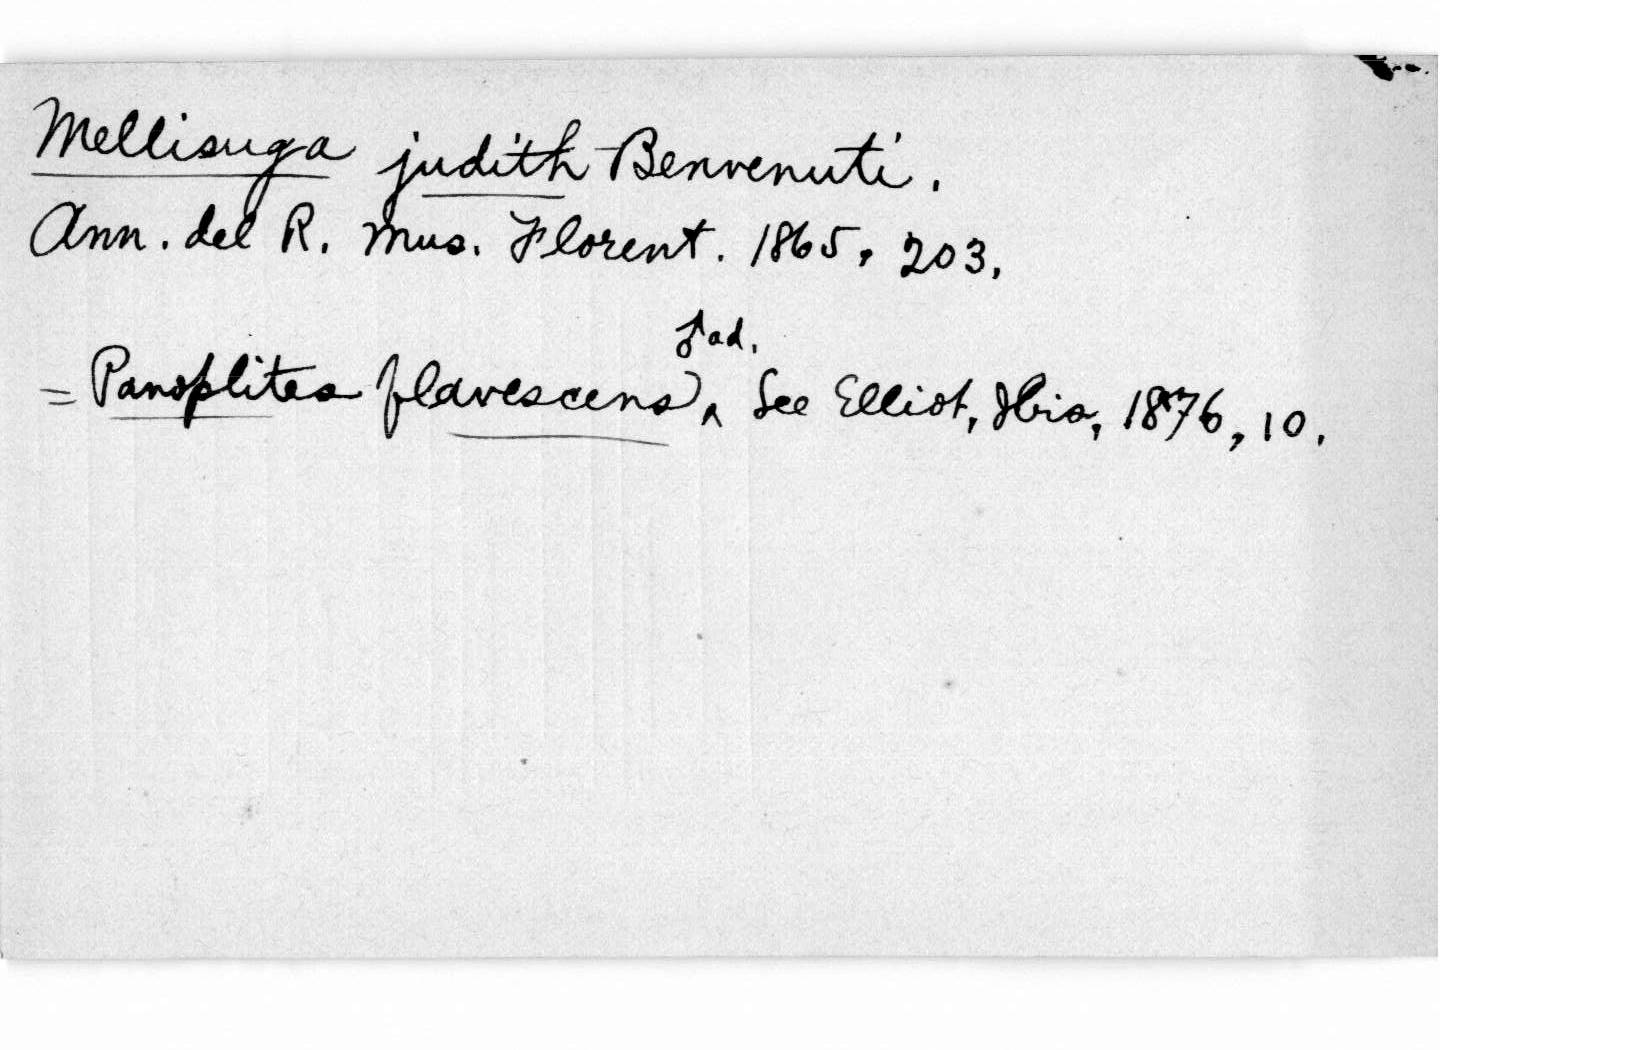 Mellisuga judith Benvenuti.
Ann. del R. Mus. Florent. 1865, 203.
= Panoplites flavescens, ♂ ad. See Elliot, Ibis, 1876, 10.